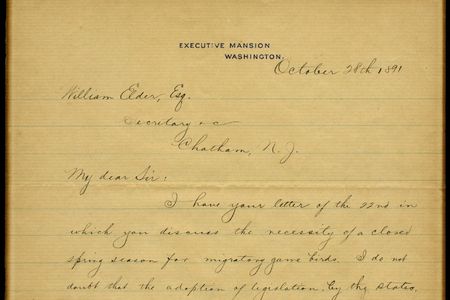 EXECUTIVE MANSION
WASHINGTON.
October 28th 1891
William Elder, Esq.
Secretary &c
Chatham, N. J.
My dear Sir:
I have your letter of the 22nd in
which you discuss the necessity of a closed
spring season for migratory game birds. I do not
doubt that the adoption of legislation by the states,